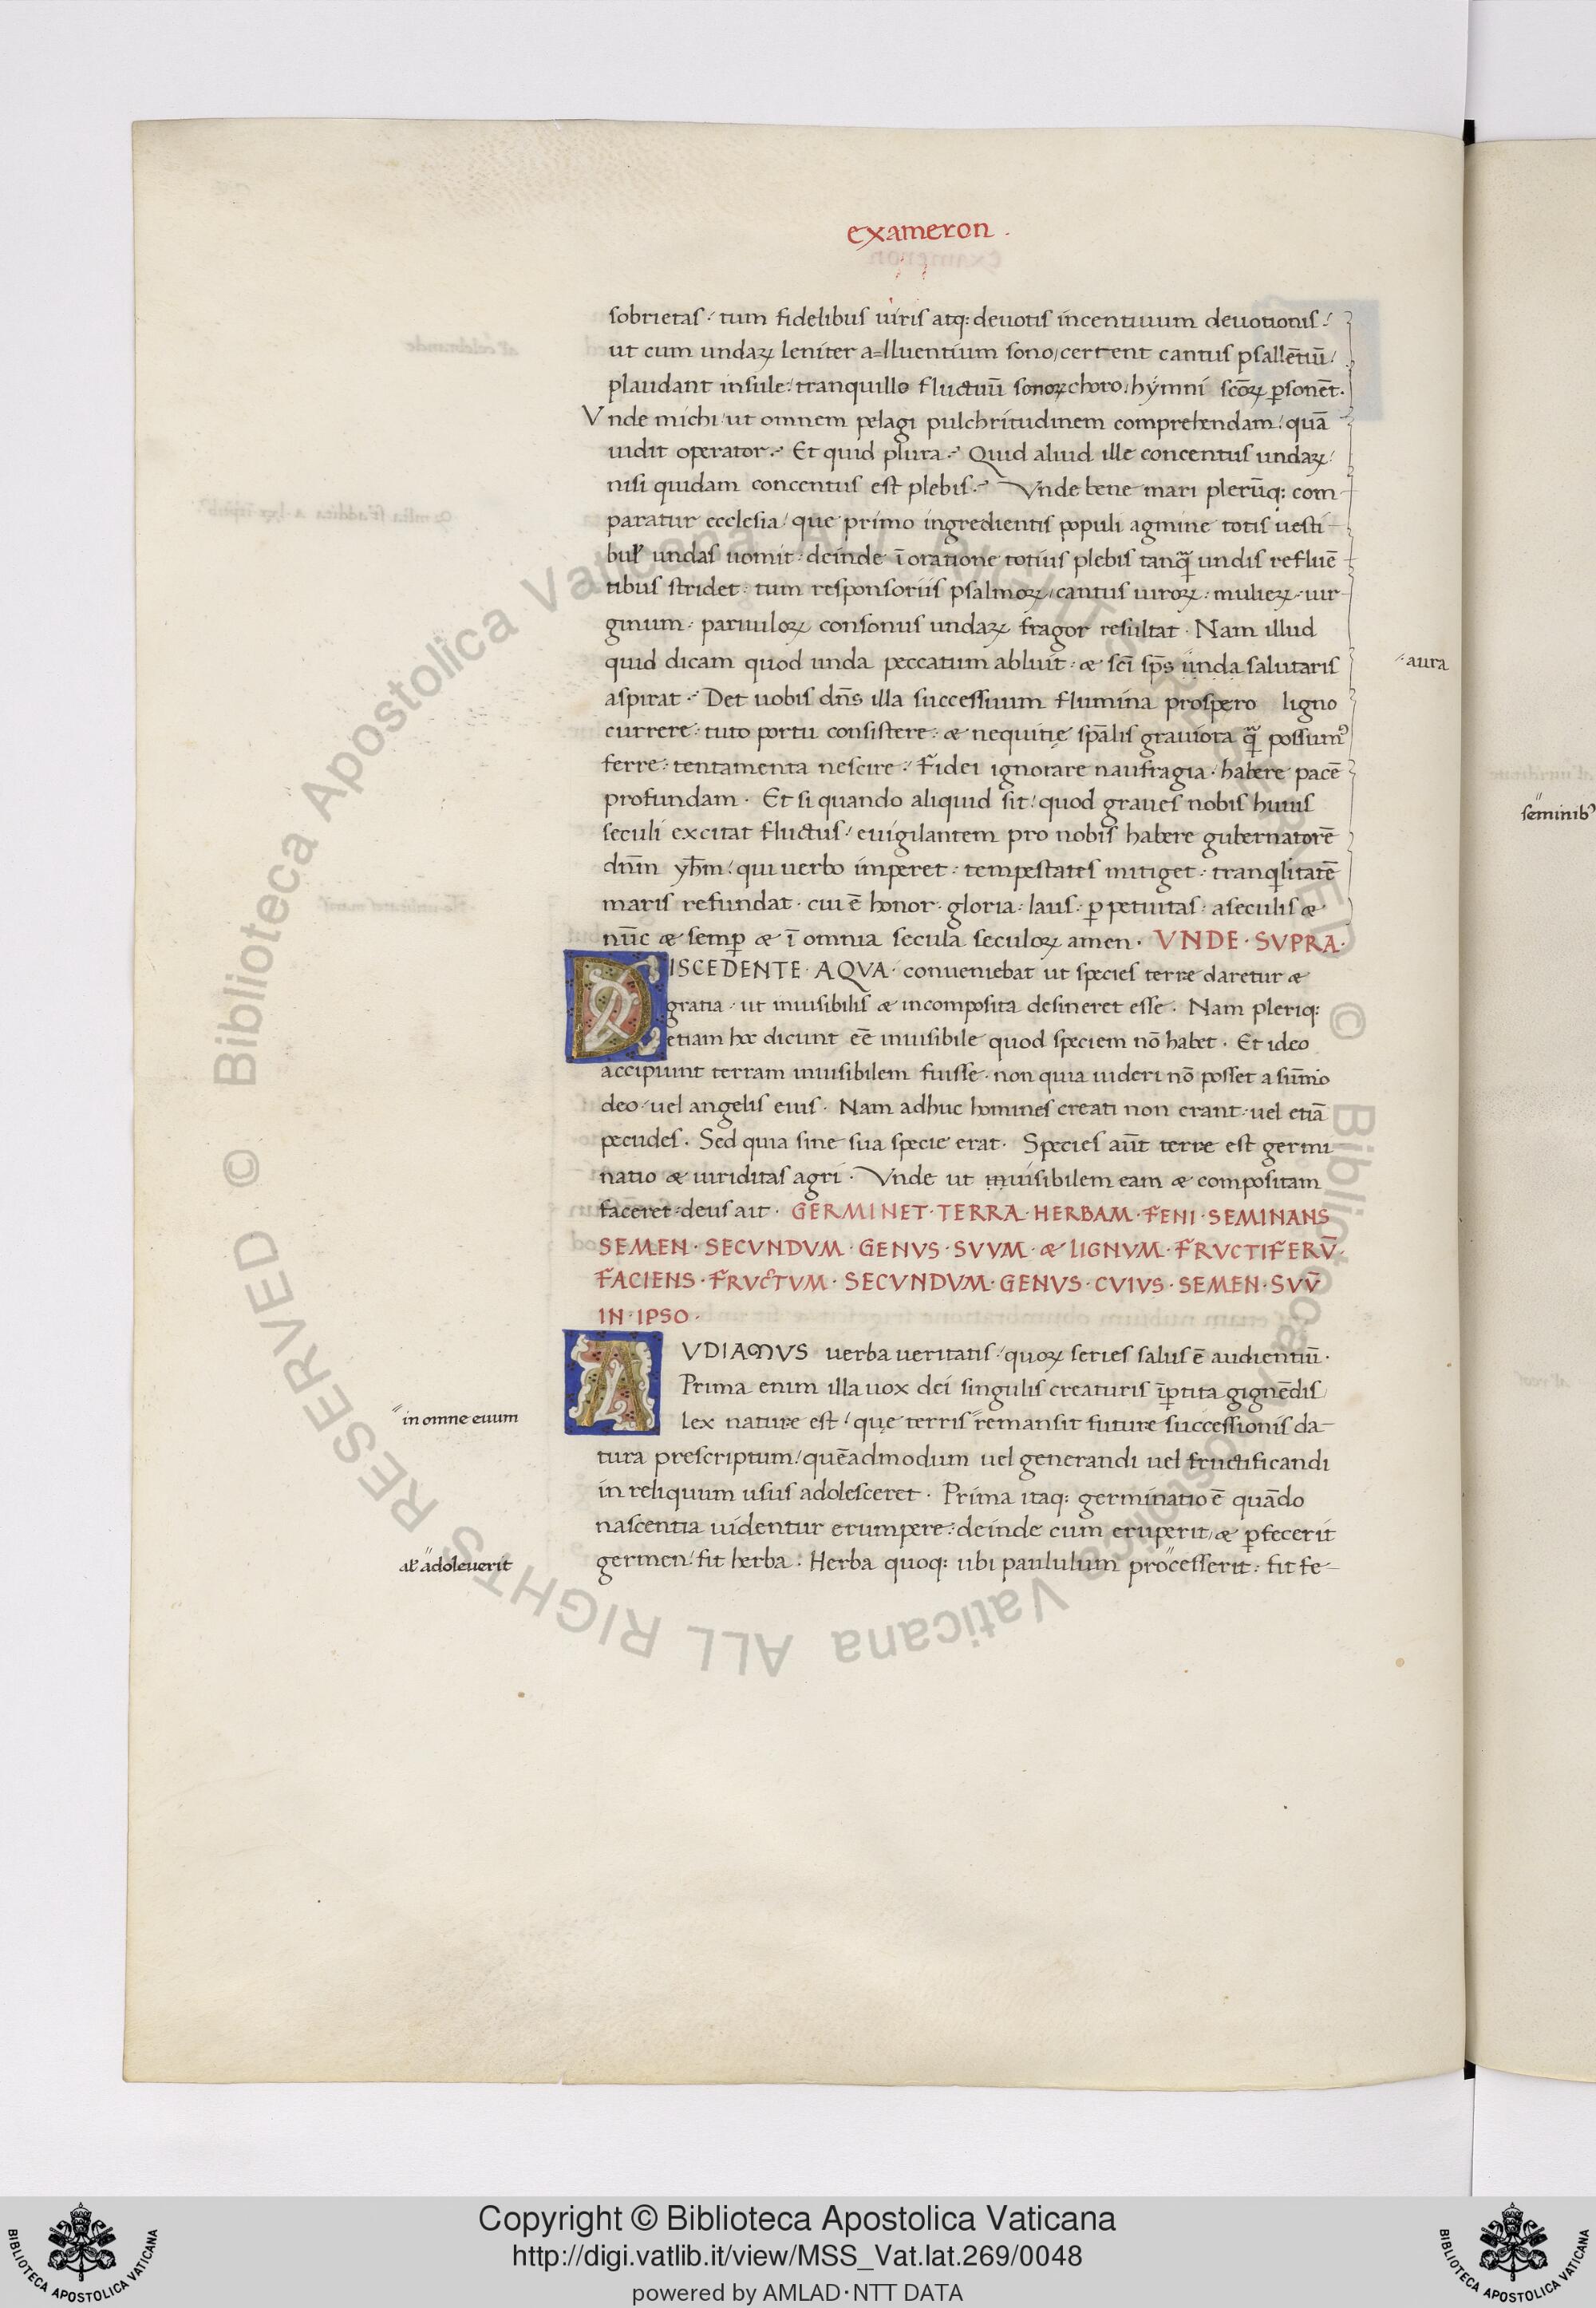 exameron ·
sobrietas · tum fidelibus uiris atq: deuotis incentiuum deuotionis ·
ut cum undaꝝ leniter alluentium sono certent cantus psallētiū
plaudant insule · tranquillo fluctuū sonoꝝ choro hymni scōꝝ ꝑsonēt ·
Vnde michi ut omnem pelagi pulchritudinem comprehendam quā
uidit operator · Et quid plura · Quid aliud ille concentus undaꝝ
nisi quidam concentus est plebis · Vnde bene mari plerūq: com
paratur ecclesia que primo ingredientis populi agmine totis uesti
bul' undas uomit : deinde ī oratione totius plebis tanq̄ undis refluē
tibus stridet : tum responsoriis psalmoꝝ cantus uiroꝝ : mulieꝝ · uir
ginum : paruuloꝝ consonus undaꝝ fragor resultat · Nam illud
quid dicam quod unda peccatum abluit : & scī sp̄s unda salutaris
aura
aspirat · Det uobis dn̄s illa successiuum flumina prospero ligno
currere : tuto portu consistere : & nequitię sp̄alis grauiora q̄ possumꝰ
ferre : tentamenta nescire · Fidei ignorare naufragia · habere pacē
profundam · Et si quando aliquid sit quod graues nobis huius
seculi excitat fluctus euigilantem pro nobis habere gubernatorē
dn̄m yh̄m qui uerbo imperet : tempestates mitiget : tranqlitatē
maris refundat · cui ē honor · gloria : laus : ꝑpetuitas · aseculis &
nūc & semꝑ & ī omnia secula seculoꝝ amen · VNDE · SVPRA ·
DISCEDENTE · AQVA · conueniebat ut species terre daretur &
gratia · ut inuisibilis & incomposita desineret esse · Nam pleriq:
etiam hoc dicunt eē inuisibile quod speciem nō habet · Et ideo
accipiunt terram inuisibilem fuisse · non quia uideri nō posset a sūmo
deo uel angelis eius · Nam adhuc homines creati non erant uel etiā
pecudes · Sed quia sine sua specie erat · Species aūt terre est germi
natio & uiriditas agri · Vnde ut inuisibilem eam & compositam
faceret deus ait · GERMINET · TERRA · HERBAM · FENI · SEMINANS
SEMEN · SECVNDVM · GENVS · SVVM · & LIGNVM · FRVCTIFERV̄ ·
FACIENS · FRVCTVM · SECVNDVM · GENVS · CVIVS · SEMEN · SVV̄
IN · IPSO ·
AVDIAMVS uerba ueritatis quoꝝ series salus ē audientiū ·
Prima enim illa uox dei singulis creaturis īꝑtita gignēdis
in omne euum
lex nature est que terris remansit future successionis da
tura prescriptum quēadmodum uel generandi uel fructificandi
in reliquum usus adolesceret · Prima itaq: germinatio ē quādo
nascentia uidentur erumpere : deinde cum eruperit & ꝑfecerit
al' adoleuerit
germen fit herba · Herba quoq: ubi paululum processerit : fit fe
seminibꝰ
Copyright © Biblioteca Apostolica Vaticana
http://digi.vatlib.it/view/MSS_Vat.lat.269/0048
powered by AMLAD · NTT DATA
BIBLIOTECA APOSTOLICA VATICANA
BIBLIOTECA APOSTOLICA VATICANA
© Biblioteca Apostolica Vaticana ALL RIGHTS RESERVED
© Biblioteca Apostolica Vaticana ALL RIGHTS RESERVED